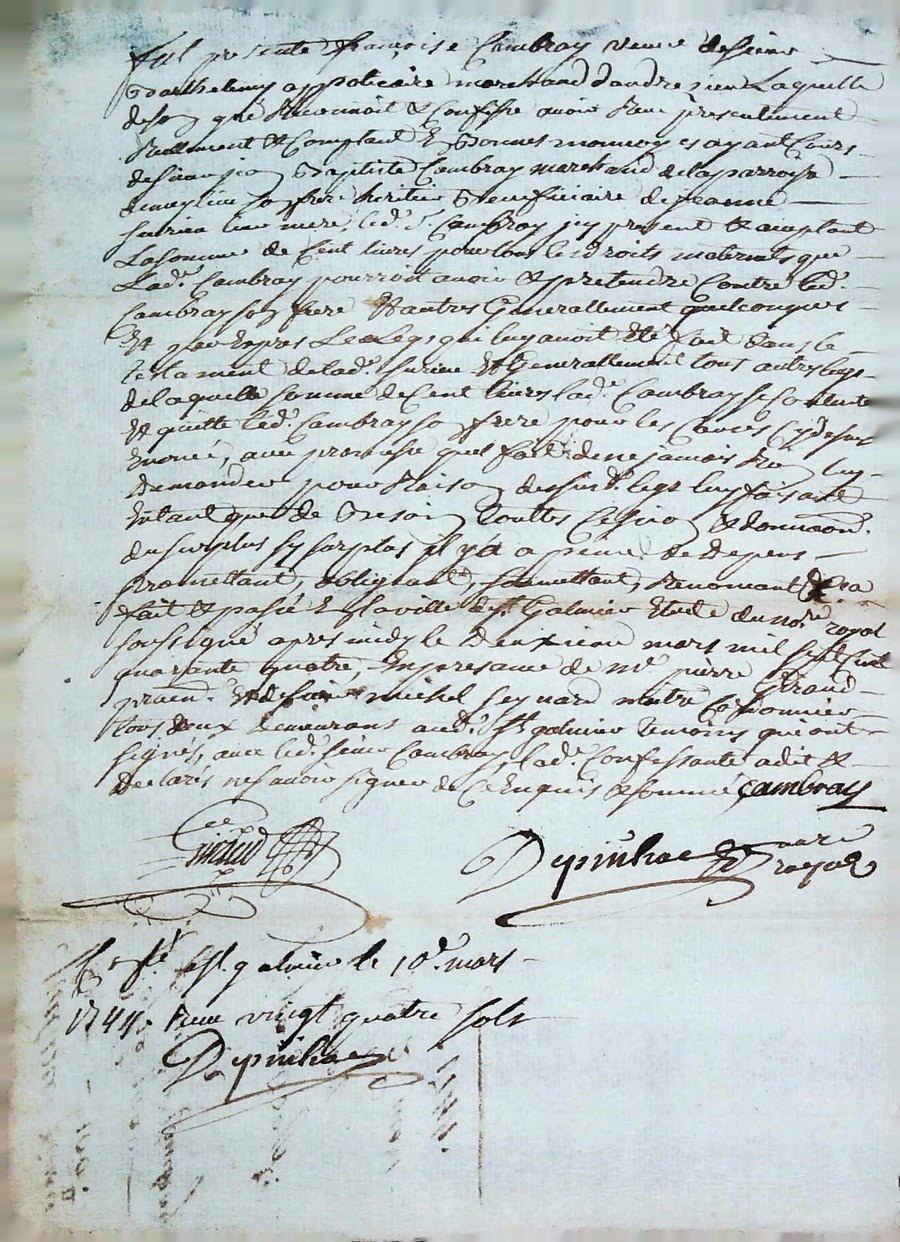 fut presente françoise Cambray veuve de sieur
Barthelemy appoticaire marchand dandresieu Laquelle
de son gré Reconnoit & Confesse avoir Reçu presentement
Reellement & Comptant En Bonnes monnoyes ayant Cours
de sieur jean Baptiste Cambray marchand de la parroisse
de son frere heritier Beneficiaire de jeanne
leur mere, led. Sr. Cambray icy present & acceptant
La somme de Cent livres pour tous les droits maternels que
Lade. Cambray pourroit avoir & pretendre Contre led.
Cambray son frere Et autres Generallement quelconques
Et par Expres Le Legs qui luy avoit Eté fait dans le
testament de lade. Et Generallement tous autres legs
de laquelle somme de Cent livres lade. Cambray se Contente
Et quitte led. Cambray son frere pour les Causes Cy dessus
Enoncé, avec promesse quel fait de ne jamais Rien luy
Demander pour Raison desd. legs luy faisant
Entant que de Besoin touttes Cession & donnaon.
du surplus sy surplus il y a a peine de Depens
promettant, obligeant, soumettant, Renoncant &ca
fait & passé En la ville de St. Galmier Etude du nore. royal
soussigné apres midy le Deuxieme mars mil sept cent
quarante quatre, En presance de me. pierre Giraud
praen. Et de sieur michel seynard maitre Cordonnier
tous deux demeurans aud. St. galmier temoins qui ont
signés, avec led. sieur Cambray, lade. Confessante a dit &
Declaré ne sçavoir signer de Ce Enquis & sommé Cambray
Giraud
Depinhac nore
royal
St. galmier le 10e. mars
1744. Reçu vingt quatre sols
Depinhac